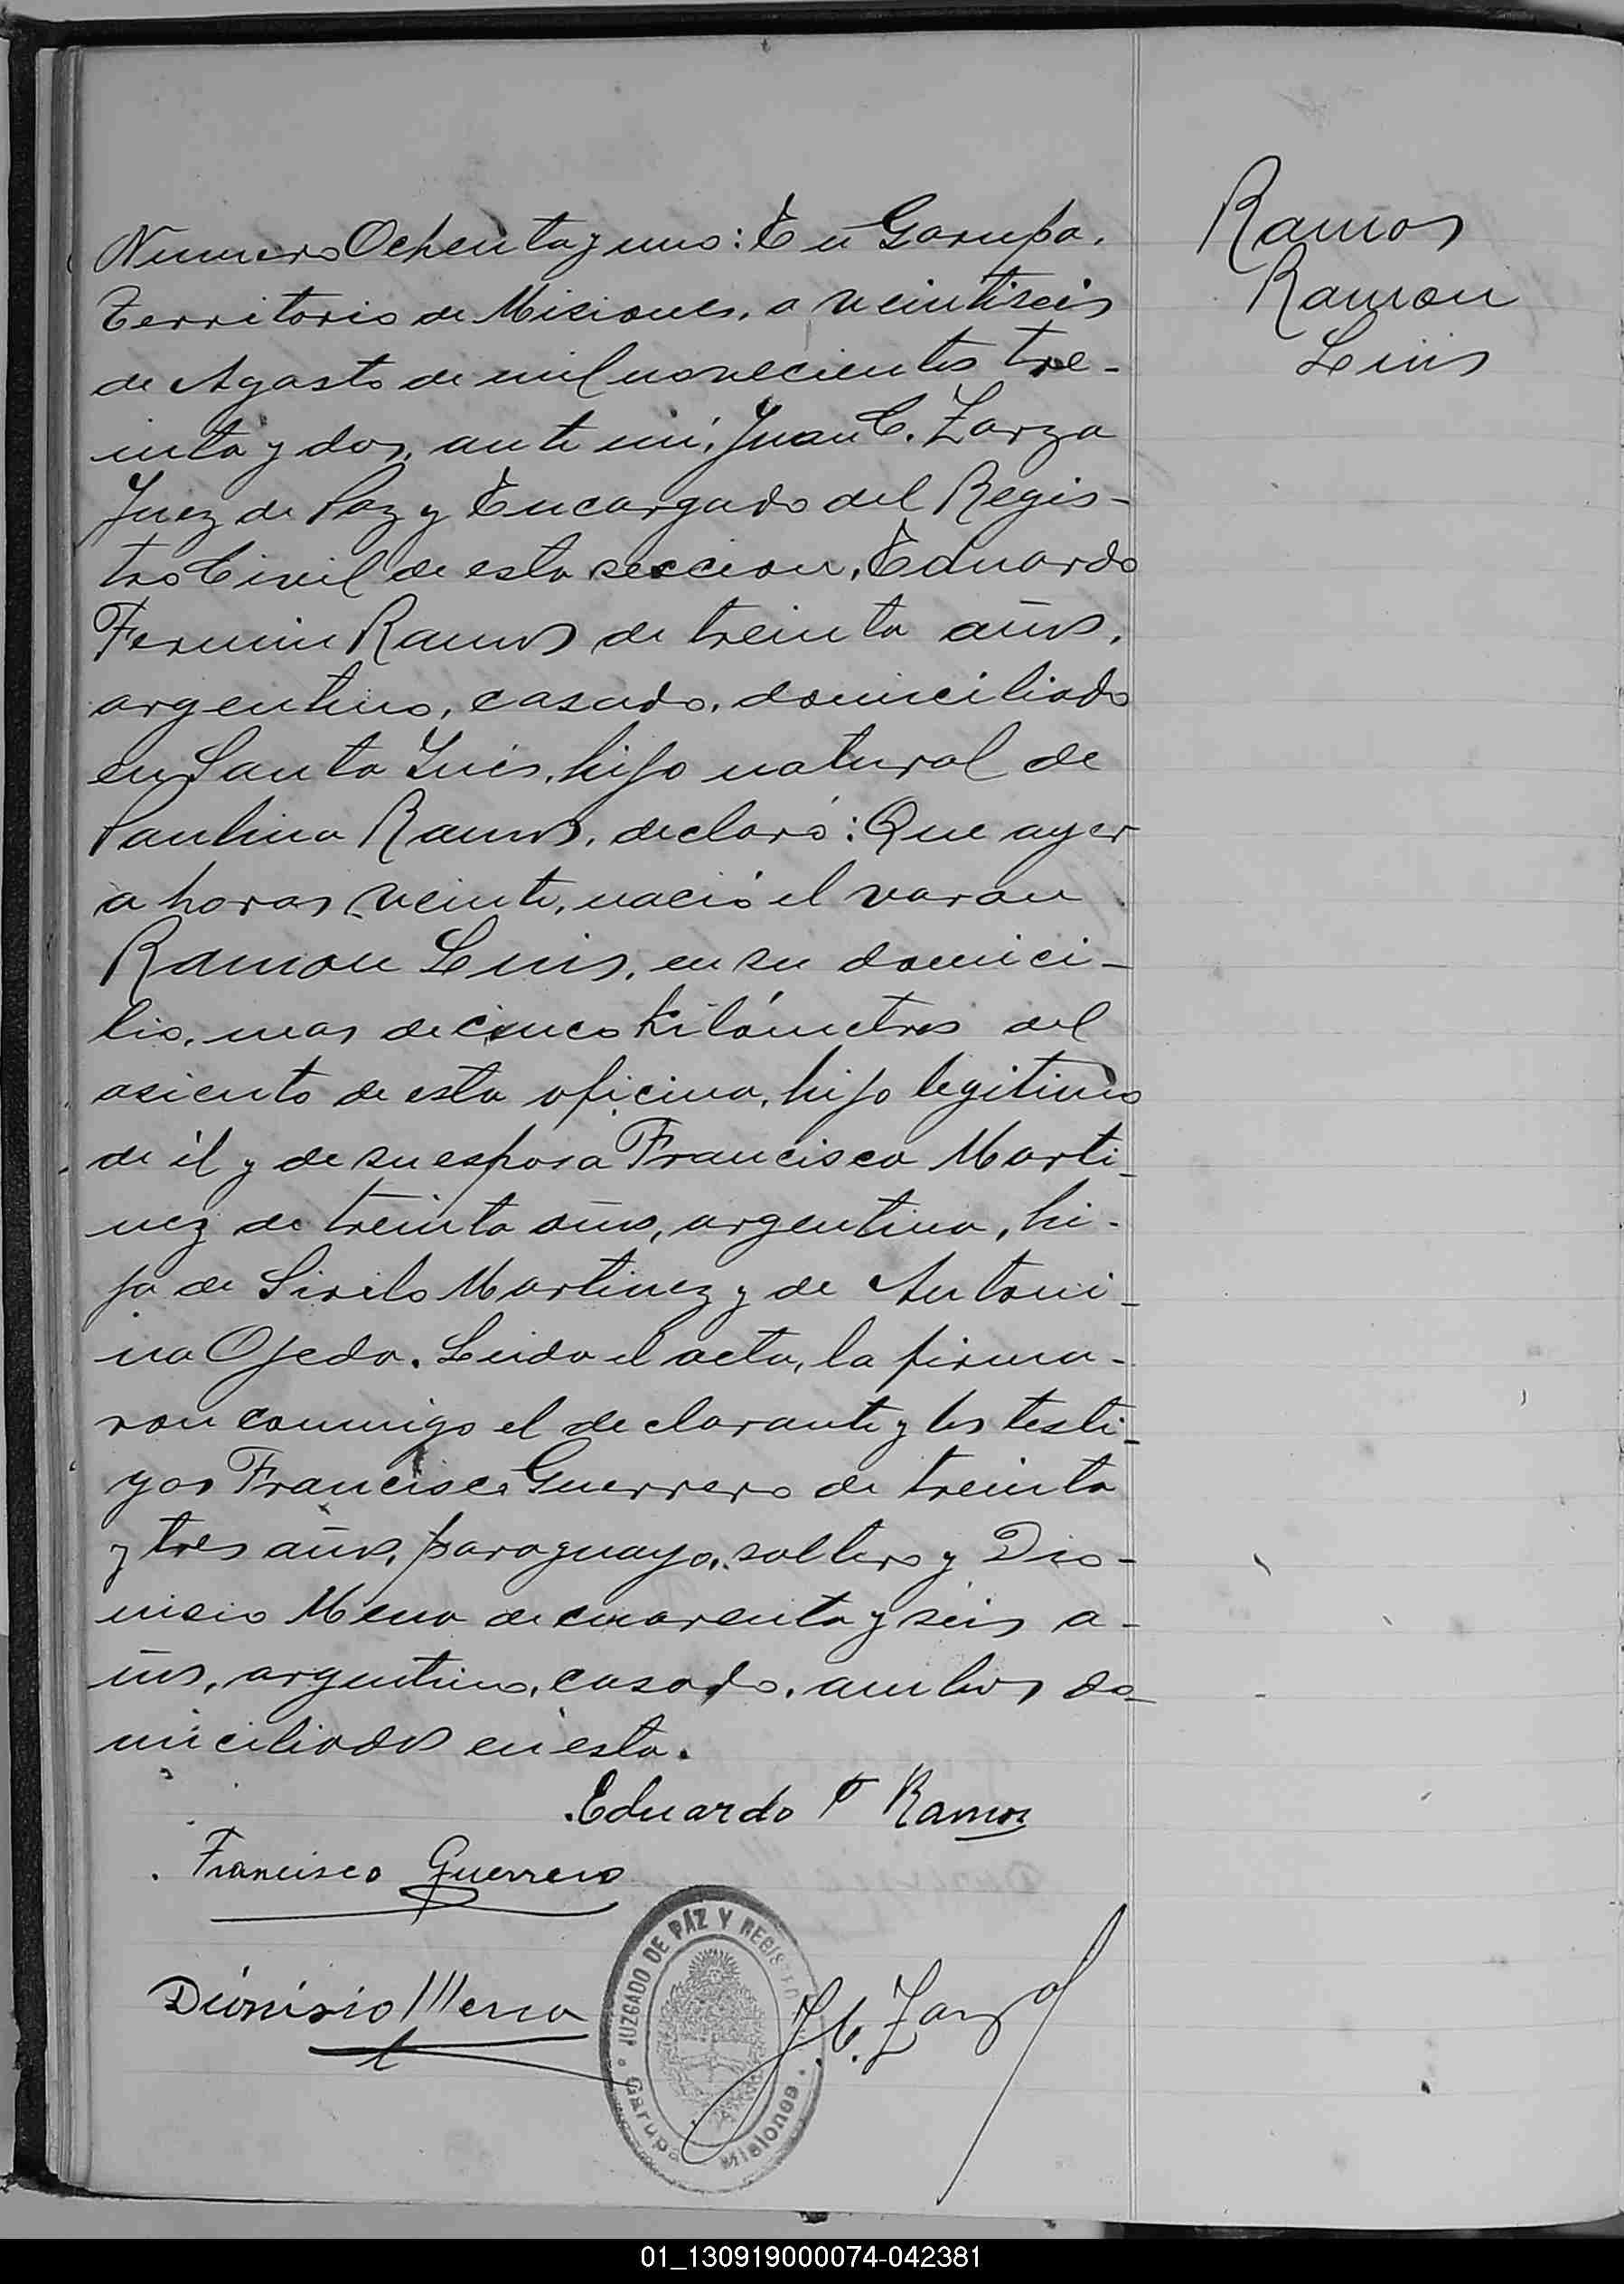 Ramos
Ramon
Luis
Numero Ochenta y uno: En Garupa,
Territorio de Misiones, a veintiseis
de Agosto de mil novecientos tre-
inta y dos, ante mi, Juan C. Zarza
Juez de Paz y Encargado del Regis-
tro Civil de esta seccion, Eduardo
Fermin Ramos de treinta años,
argentino, casado, domiciliado
en Santa Inés, hijo natural de
Paulina Ramos, declaró: Que ayer
a horas veinte, nació el varon
Ramon Luis, en su domici-
lio, mas de cinco kilómetros del
asiento de esta oficina, hijo legitimo
de él y de su esposa Francisca Marti-
nez de treinta años, argentina, hi-
ja de Sirilo Martinez y de Antoni-
na Ojeda. Leida el acta, la firma-
ron conmigo el declarante y los testi-
gos Francisco Guerrero de treinta
y tres años, paraguayo, soltero y Dio-
nisio Mena de cuarenta y seis a-
ños, argentino, casado, ambos do-
miciliados en esta.
Eduardo F Ramos
Francisco Guerrero
Dionisio Mena
J. C. Zarza
JUZGADO DE PAZ Y REGISTRO
Garupa Misiones
01_130919000074-042381